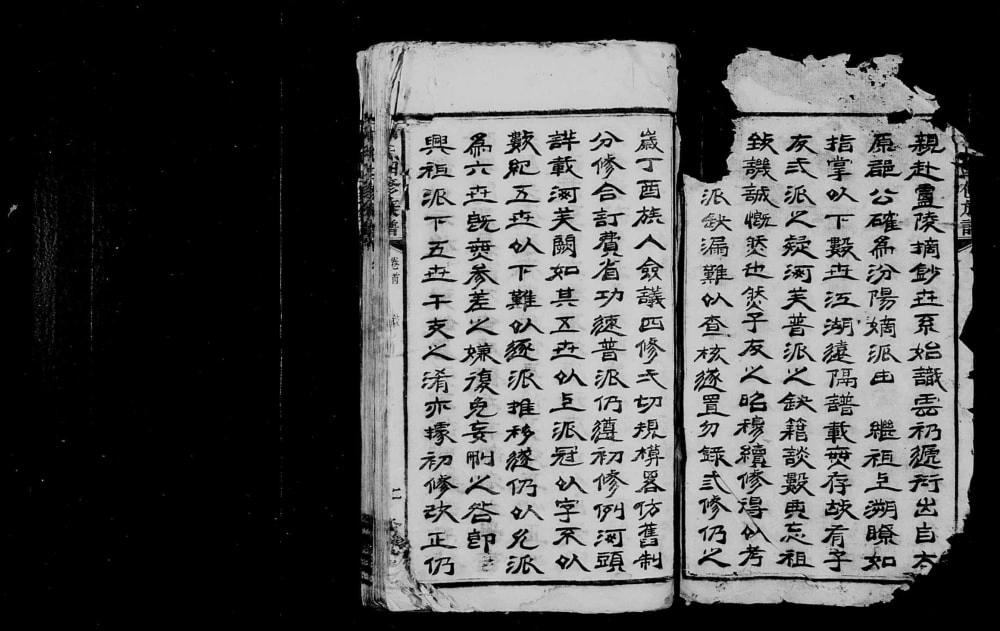 親赴靈陵摘鈔世系始識雲礽遞衍出自太
原邑公確為汾陽嫡派由 繼祖上溯瞭如
指掌以下數世江湖遠隔譜載無存故有子
友弍派之疑河芙普派之缺籍談數典忘祖
缺譏誠慨然也然子友之昭穆續修得以考
派缺漏難以查核遂置勿錄弍修仍之
歲丁酉族人僉議四修弌切規模畧仿舊制
分修合訂費省功速普派仍遵初修例河頭
詳載河芙闕如其五世以上派冠以字不以
歎紀五世以下難以逐派推移遂仍以允派
為六世既無參差之嫌復免妄刪之咎即
興祖派下五世干支之淆亦據初修改正仍
四修族譜
卷首
二
修族譜